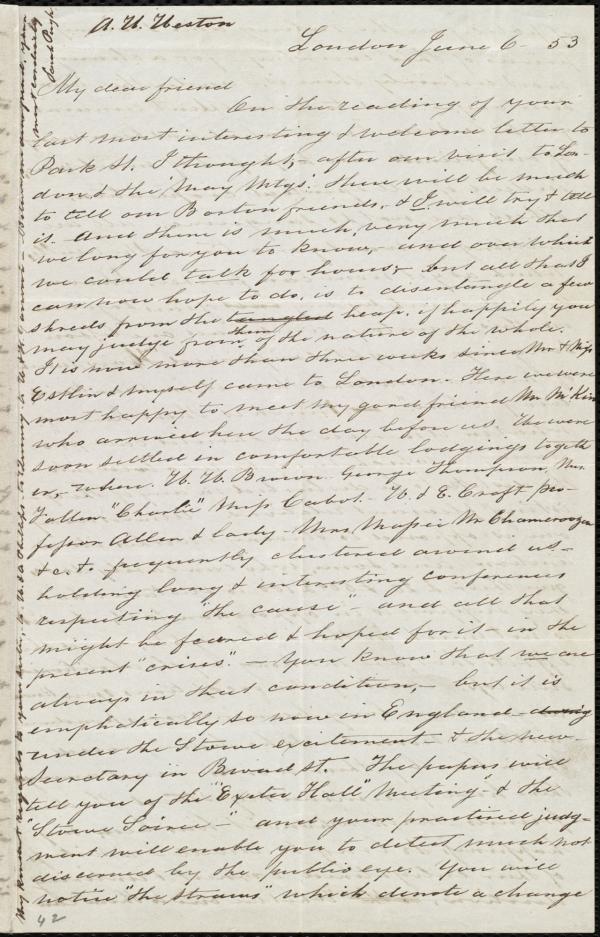 A. W. Weston
London June 6 - 53
My dear friend
On the reading of your
last most interesting & welcome letter to
Park St. I thought, - after our visit to Lon-
don & the 'May Mtgs'. there will be much
to tell our Boston friends, & I will try & tell
it. And there is much, very much that
we long for you to know, - and over which
we could talk for hours, - but all that I
can now hope to do, is to disentangle a few
shreds from the tangled heap, if happily you
may judge from them of the nature of the whole.
It is now more than three weeks since Mr & Miss
Estlin & myself came to London. Here we were
most happy to meet my good friend Mr McKim
who arrived here the day before us. We were
soon settled in comfortable lodgings togeth
er, where W. W. Brown - George Thompson, Mrs
Follen "Charlie" Miss Cabot - W. & E. Craft - pro-
fessor Allen & lady - Mrs Massie Mr Chamerovzow
&c. &. frequently clustered around us -
holding long & interesting conferences
respecting "the cause" - and all that
might be feared & hoped for it - in the
present "crisis". - You know that we are
always in that condition, - but it is
emphatically so now in England -
under the Stowe excitement - & the new -
Secretary in Broad St. The papers will
tell you of the "Exeter Hall" Meeting" & the
"Stowe Soiree" - and your practised judg-
ment will enable you to detect much not
discerned by the public eye. You will
notice "the straws" which denote a change
42
My kindest regards to your sister, to W. & A. Phillips
most tenderly
Sarah Pugh